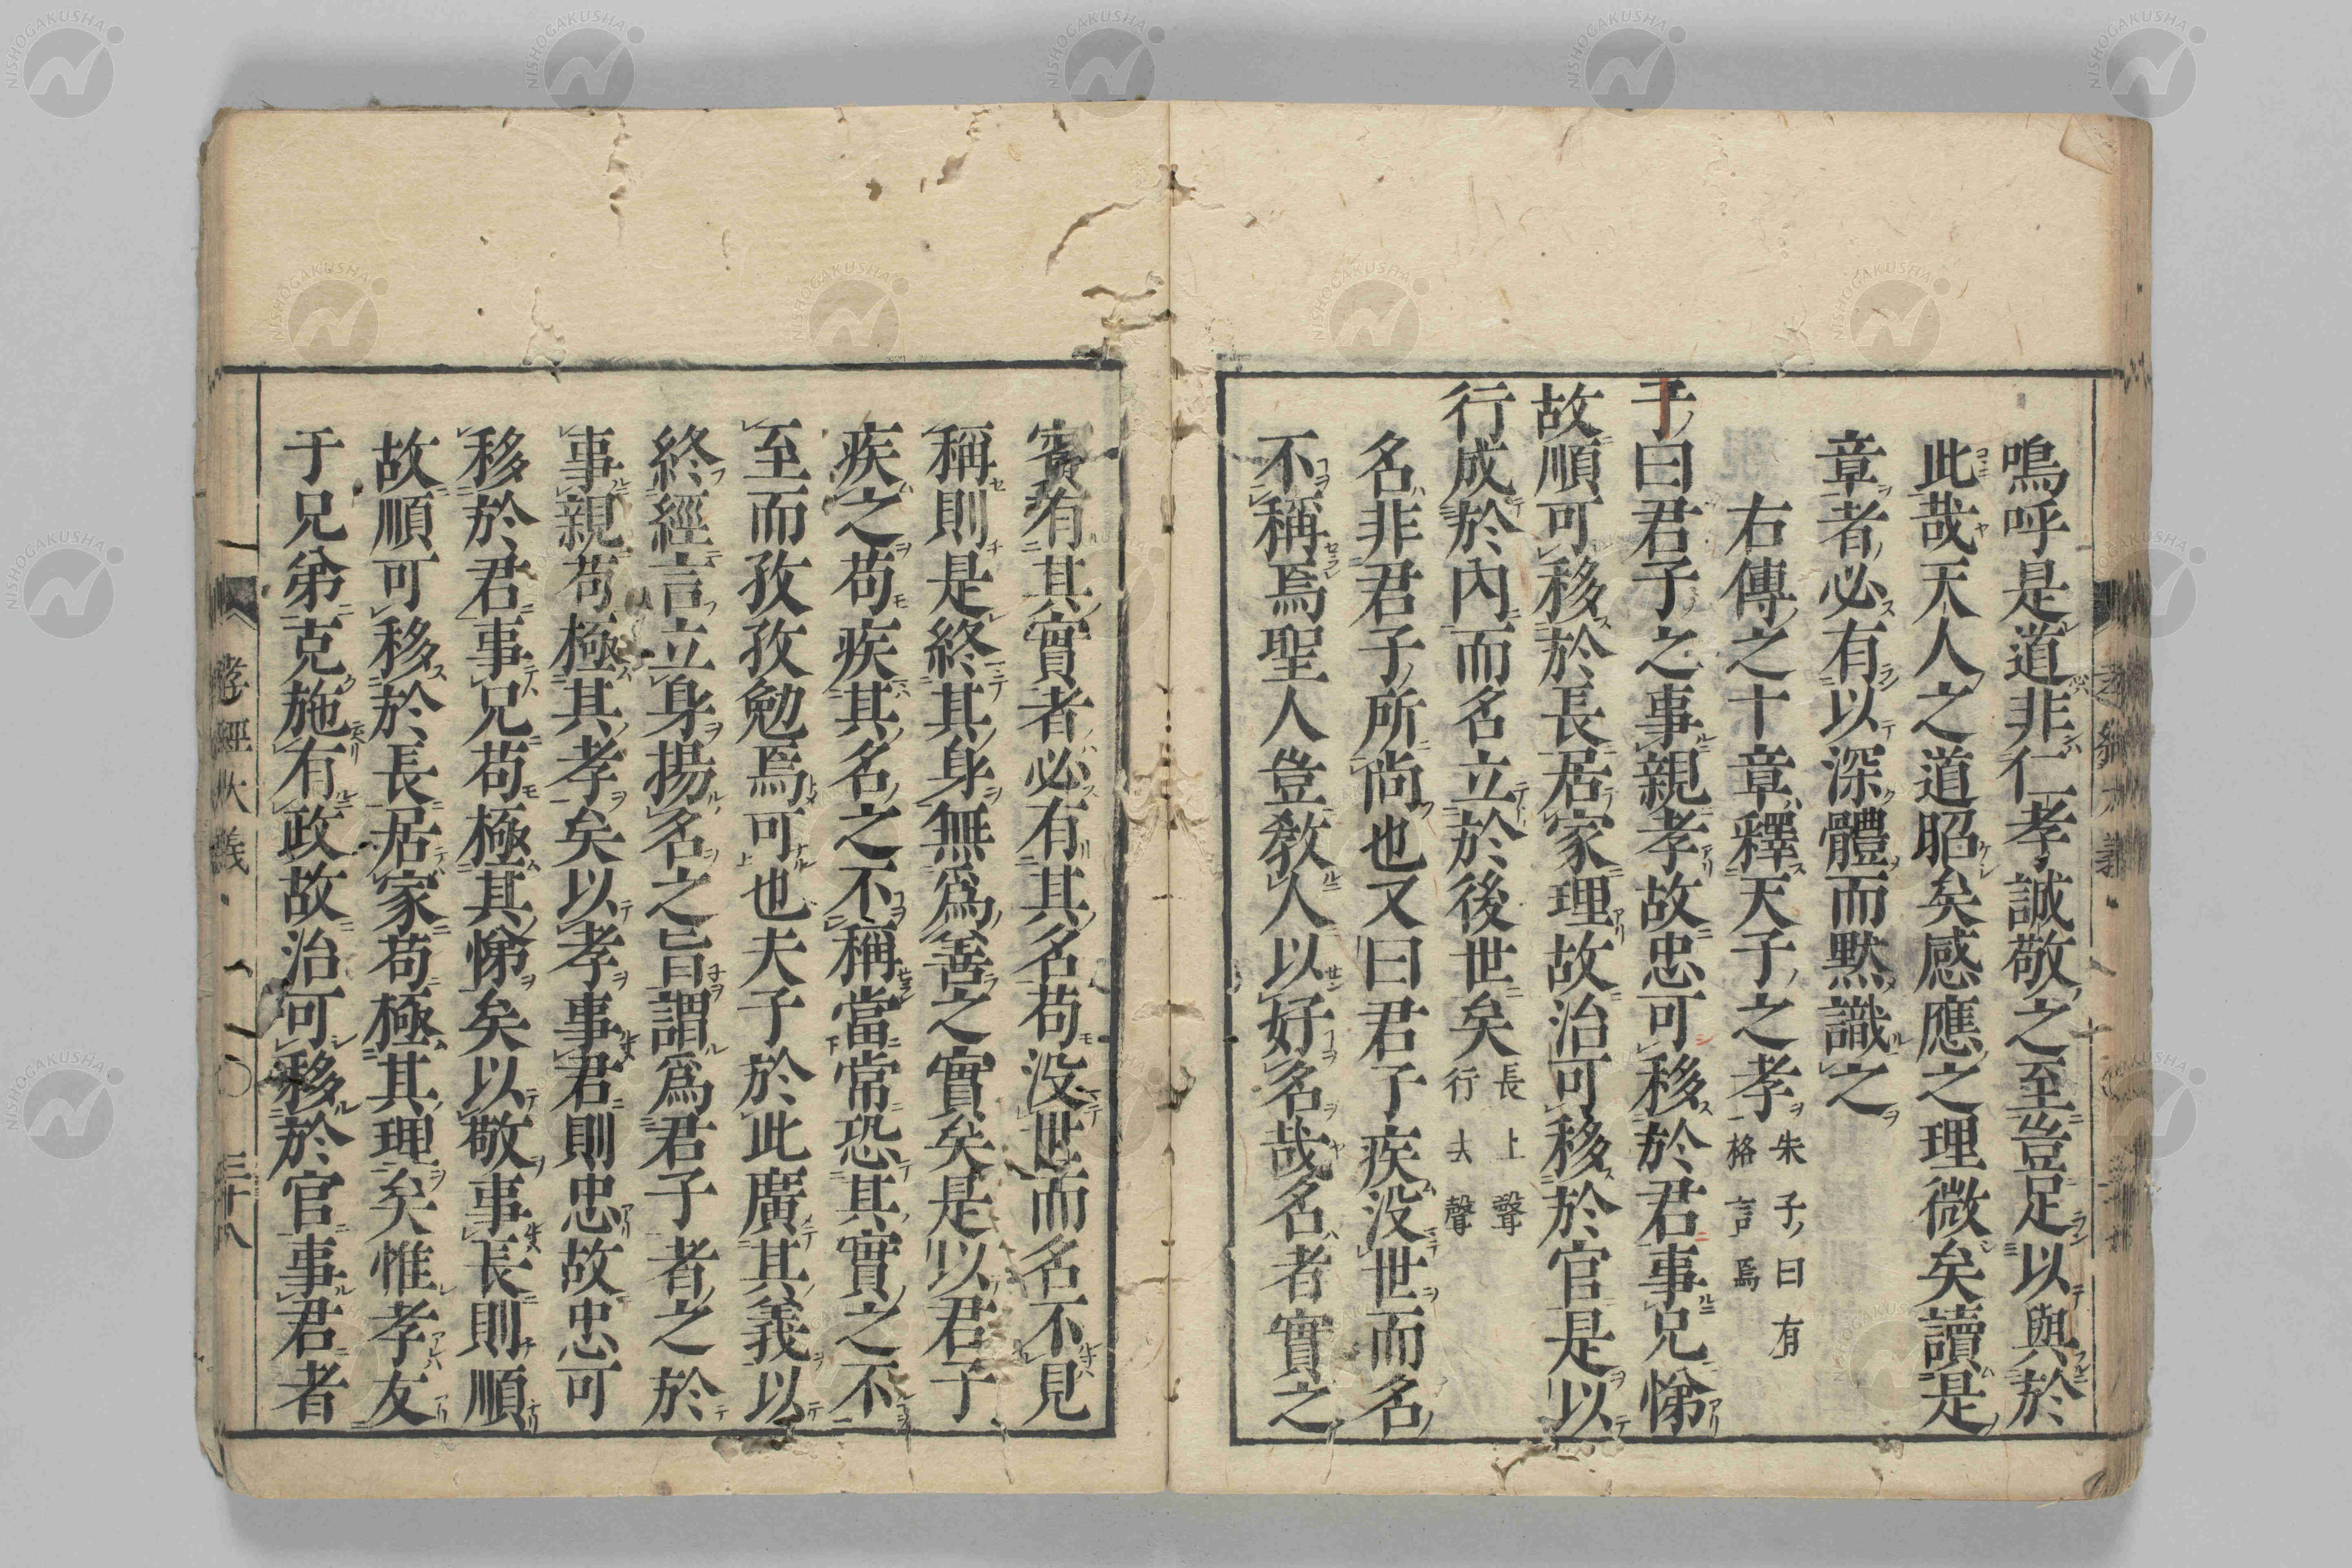 嗚呼是道非仁孝誠敬之至豈足以與於
此哉天人之道昭矣感應之理微矣讀是
章者必有以深體而黙識之
右傳之十章釋天子之孝朱子曰有格言焉
子曰君子之事親孝故忠可移於君事兄悌
故順可移於長居家理故治可移於官是以
行成於內而名立於後世矣長上聲行去聲
名非君子所尚也又曰君子疾没世而名
不稱焉聖人豈敎人以好名哉名者實之
賓有其實者必有其名苟没世而名不見
稱則是終其身無爲善之實矣是以君子
疾之苟疾其名之不稱當常恐其實之不
至而孜孜勉焉可也夫子於此廣其義以
終經言立身揚名之旨謂爲君子者之於
事親苟極其孝矣以孝事君則忠故忠可
移於君事兄苟極其悌矣以敬事長則順
故順可移於長居家苟極其理矣惟孝友
于兄弟克施有政故治可移於官事君者
孝經大義
三十八